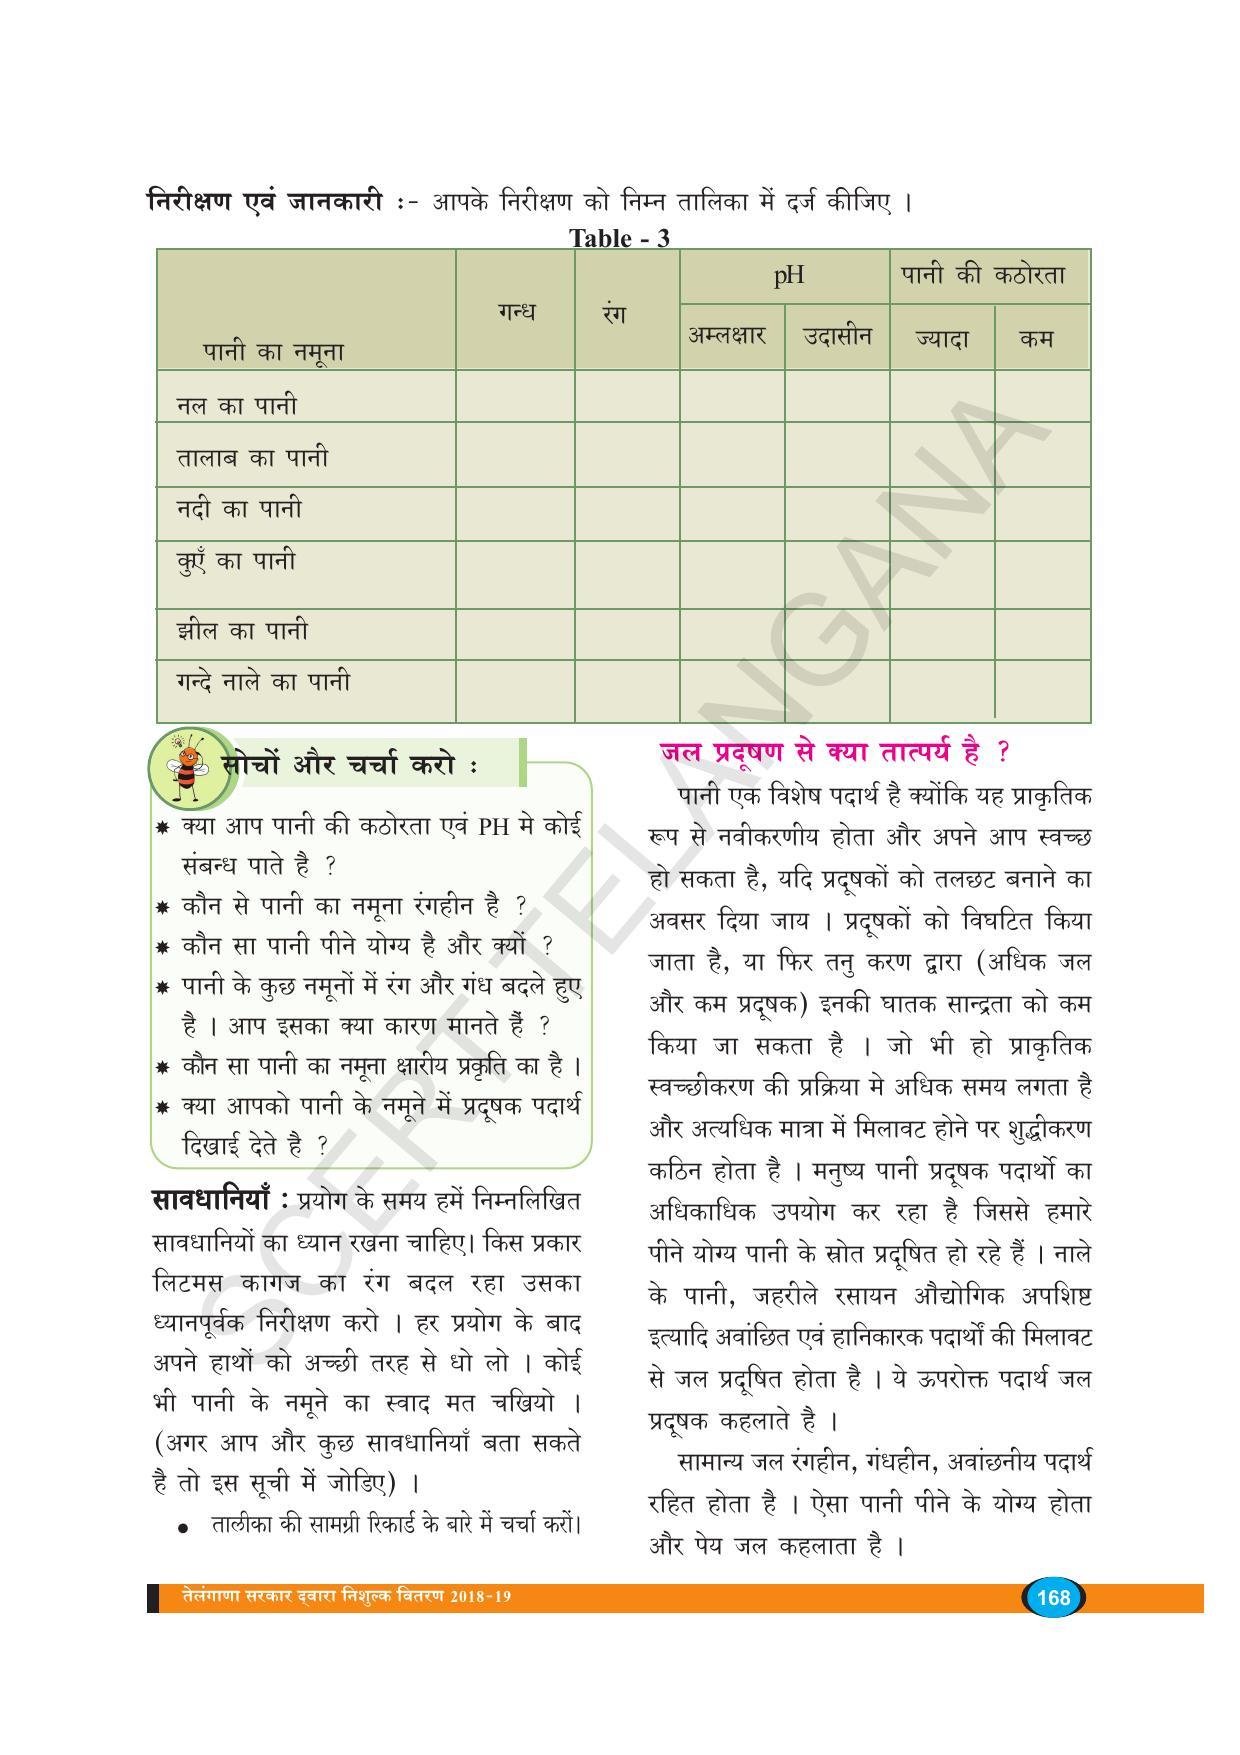 निरीक्षण एवं जानकारी :- आपके निरीक्षण को निम्न तालिका में दर्ज कीजिए ।
Table - 3
पानी का नमूना गन्ध रंग pH पानी की कठोरता
अम्लक्षार उदासीन ज्यादा कम
नल का पानी
तालाब का पानी
नदी का पानी
कुएँ का पानी
झील का पानी
गन्दे नाले का पानी
सोचों और चर्चा करो :
✷ क्या आप पानी की कठोरता एवं PH मे कोई
संबन्ध पाते है ?
✷ कौन से पानी का नमूना रंगहीन है ?
✷ कौन सा पानी पीने योग्य है और क्यों ?
✷ पानी के कुछ नमूनों में रंग और गंध बदले हुए
है । आप इसका क्या कारण मानते हैं ?
✷ कौन सा पानी का नमूना क्षारीय प्रकृति का है ।
✷ क्या आपको पानी के नमूने में प्रदूषक पदार्थ
दिखाई देते है ?
सावधानियाँ : प्रयोग के समय हमें निम्नलिखित
सावधानियों का ध्यान रखना चाहिए। किस प्रकार
लिटमस कागज का रंग बदल रहा उसका
ध्यानपूर्वक निरीक्षण करो । हर प्रयोग के बाद
अपने हाथों को अच्छी तरह से धो लो । कोई
भी पानी के नमूने का स्वाद मत चखियो ।
(अगर आप और कुछ सावधानियाँ बता सकते
है तो इस सूची में जोडिए) ।
• तालीका की सामग्री रिकार्ड के बारे में चर्चा करों।
जल प्रदूषण से क्या तात्पर्य है ?
पानी एक विशेष पदार्थ है क्योंकि यह प्राकृतिक
रूप से नवीकरणीय होता और अपने आप स्वच्छ
हो सकता है, यदि प्रदूषकों को तलछट बनाने का
अवसर दिया जाय । प्रदूषकों को विघटित किया
जाता है, या फिर तनु करण द्वारा (अधिक जल
और कम प्रदूषक) इनकी घातक सान्द्रता को कम
किया जा सकता है । जो भी हो प्राकृतिक
स्वच्छीकरण की प्रक्रिया मे अधिक समय लगता है
और अत्यधिक मात्रा में मिलावट होने पर शुद्धीकरण
कठिन होता है । मनुष्य पानी प्रदूषक पदार्थो का
अधिकाधिक उपयोग कर रहा है जिससे हमारे
पीने योग्य पानी के स्रोत प्रदूषित हो रहे हैं । नाले
के पानी, जहरीले रसायन औद्योगिक अपशिष्ट
इत्यादि अवांछित एवं हानिकारक पदार्थों की मिलावट
से जल प्रदूषित होता है । ये ऊपरोक्त पदार्थ जल
प्रदूषक कहलाते है ।
सामान्य जल रंगहीन, गंधहीन, अवांछनीय पदार्थ
रहित होता है । ऐसा पानी पीने के योग्य होता
और पेय जल कहलाता है ।
SCERT TELANGANA
तेलंगाणा सरकार द्वारा निशुल्क वितरण 2018-19
168